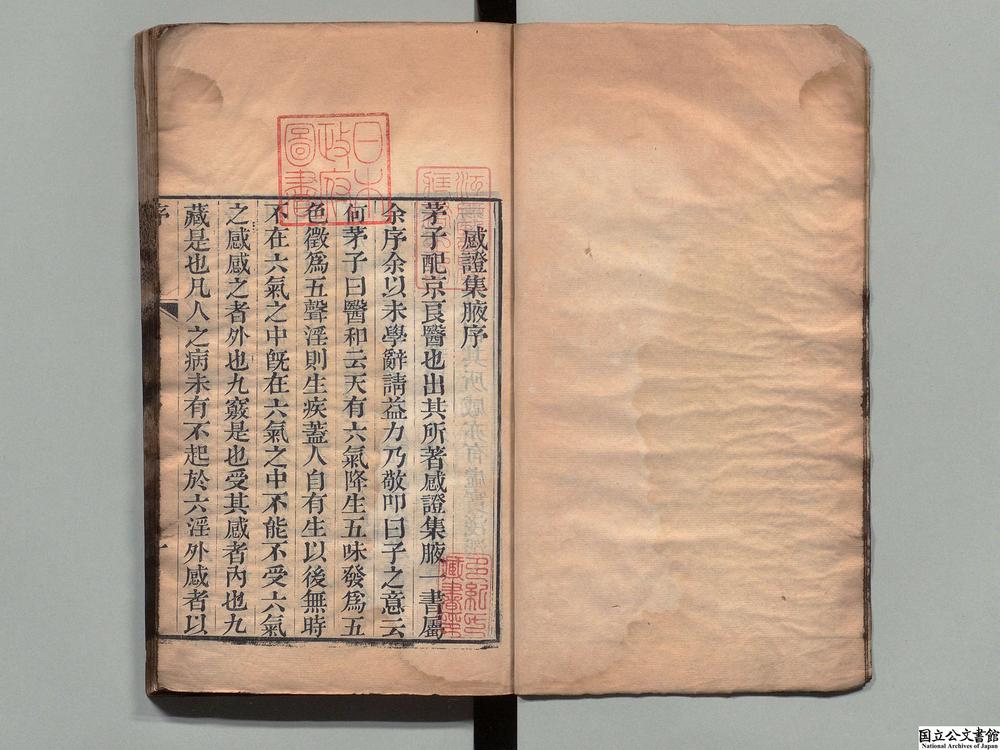 感證集腋序
茅子配京良醫也出其所著感證集腋一書屬
余序余以未學辭請益力乃敬叩曰子之意云
何茅子曰醫和云天有六氣降生五味發爲五
色徵爲五聲淫則生疾蓋人自有生以後無時
不在六氣之中旣在六氣之中不能不受六氣
之感感之者外也九竅是也受其感者內也九
藏是也凡人之病未有不起於六淫外感者以
序
一
日本
政府
圖書
国立公文書館
National Archives of Japan